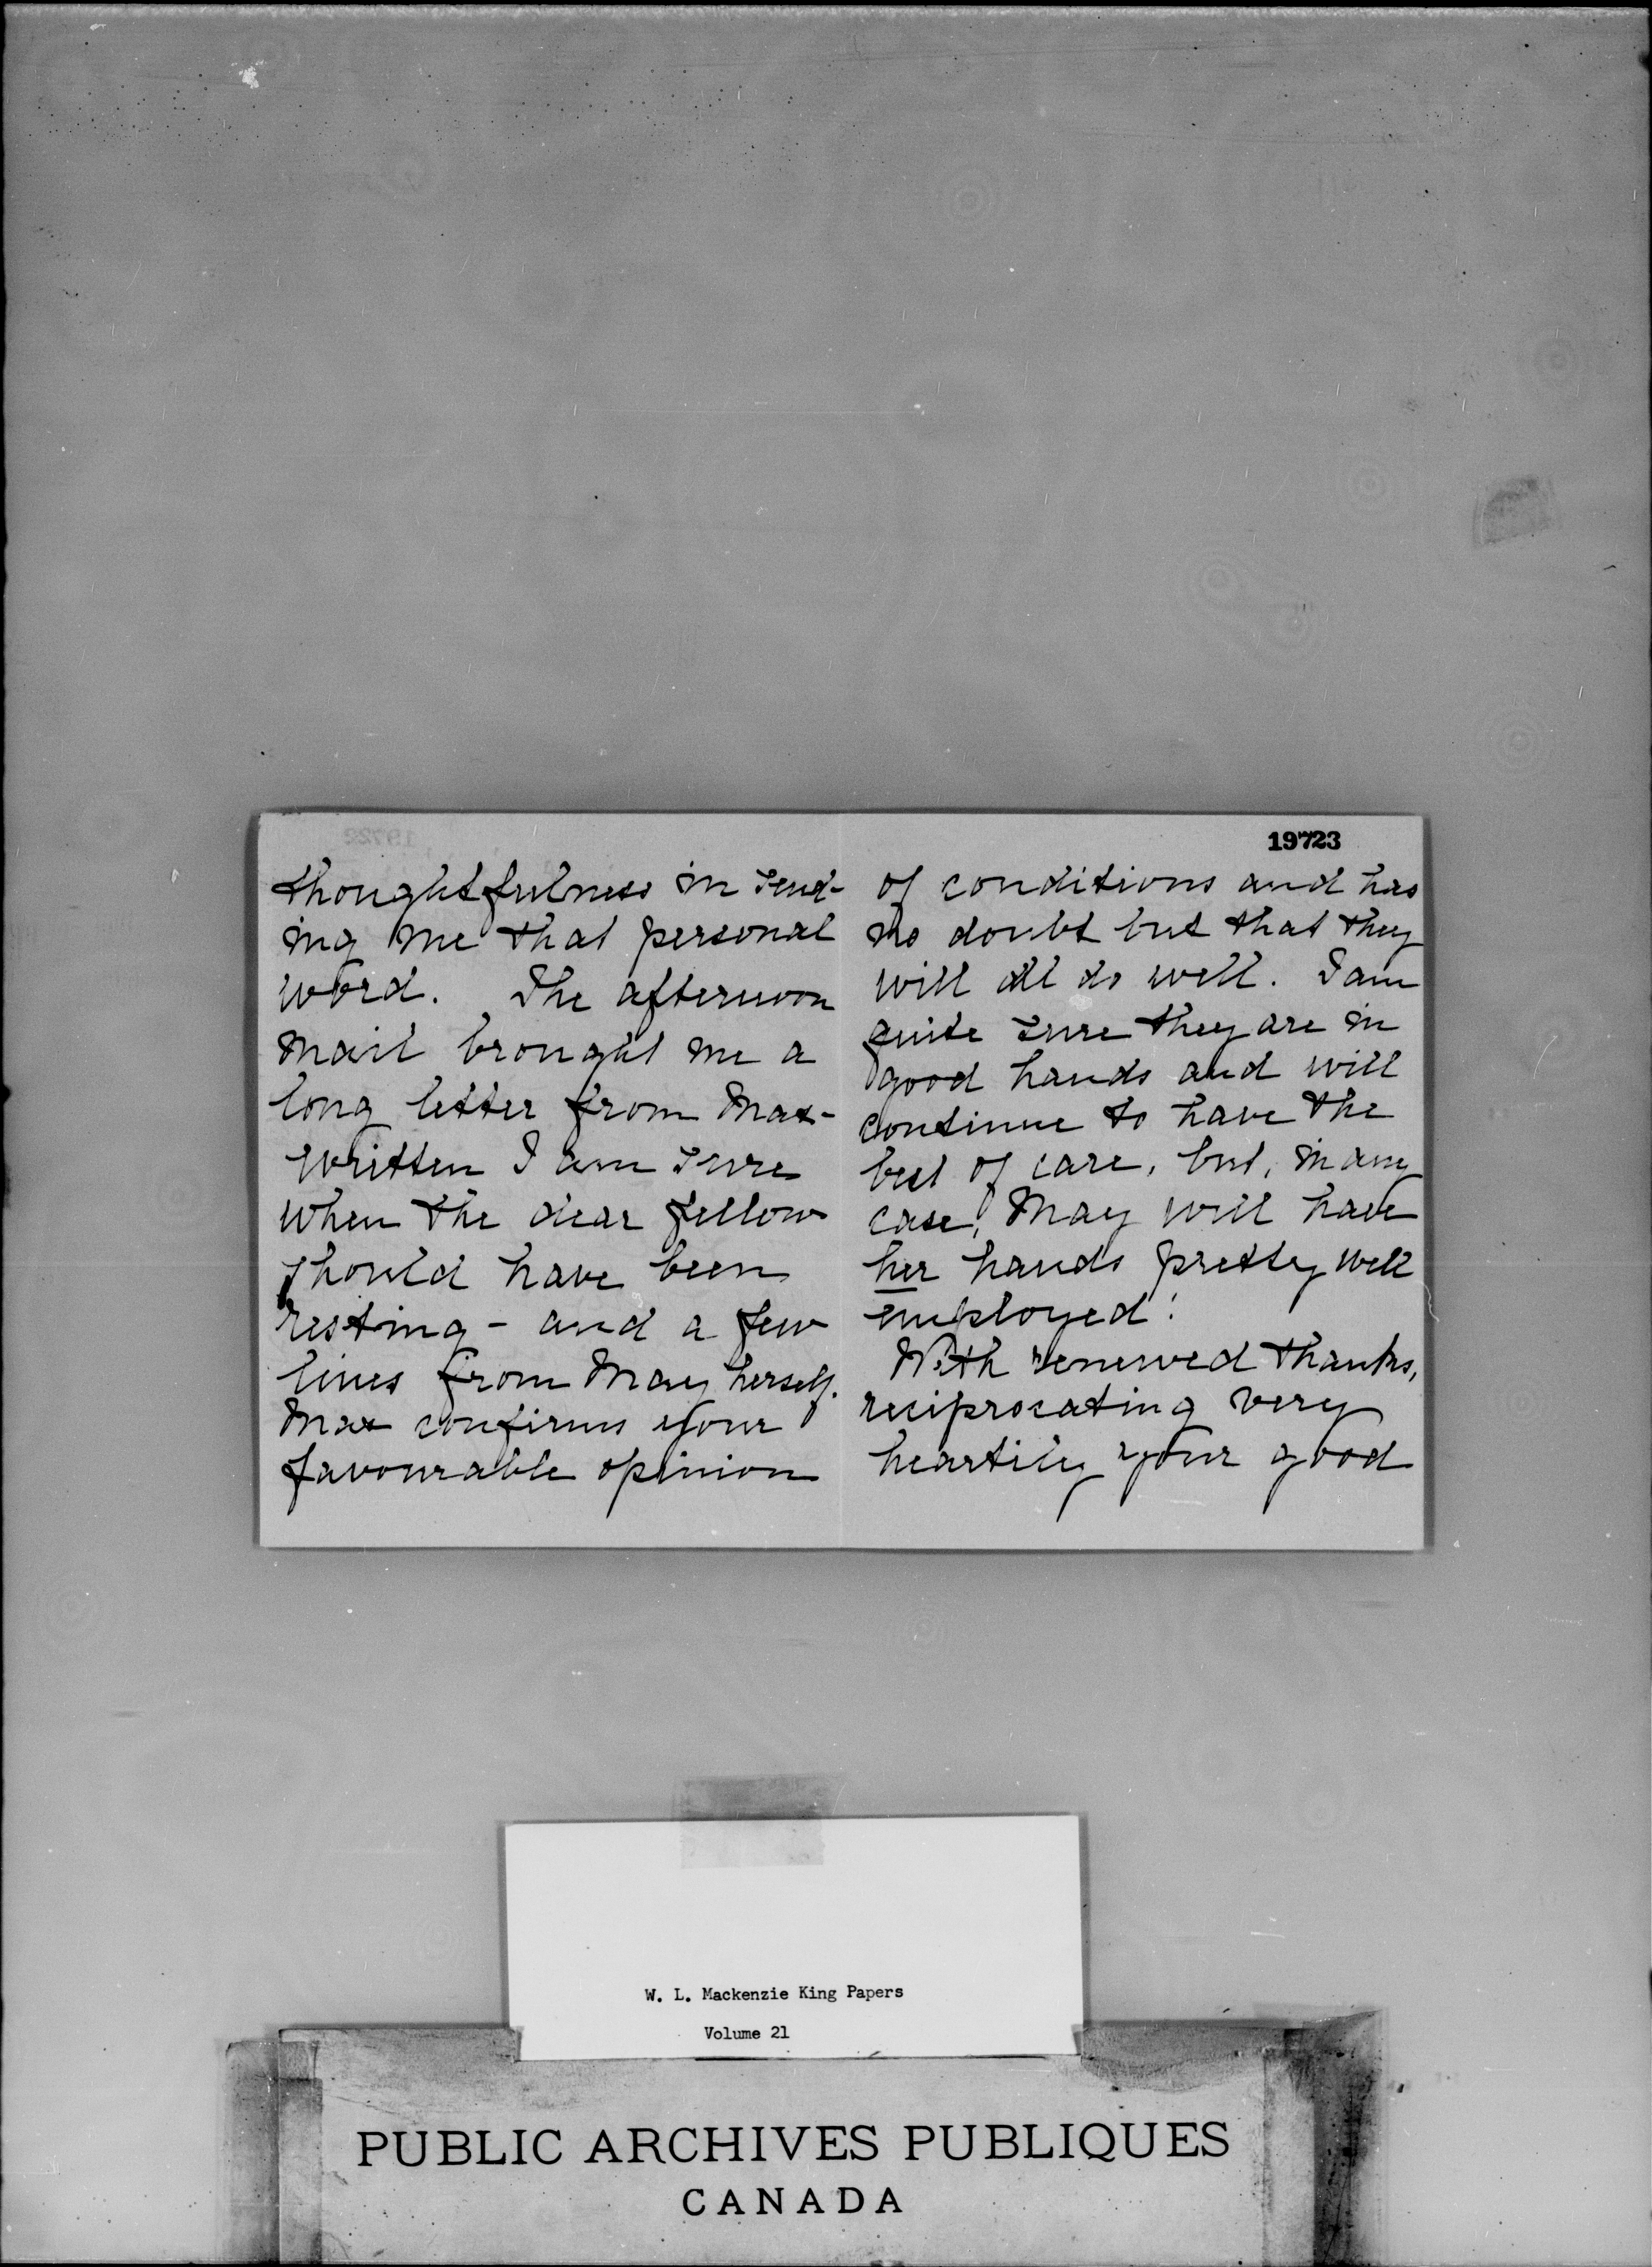 thoughtfulness in send-
ing me that personal
word. The afternoon
mail brought me a
long letter from Max -
written I am sure
when the dear fellow
should have been
resting - and a few
lines from May herself.
Max confirms your
favourable opinion
19723
of conditions and has
no doubt but that they
will all do well. I am
quite sure they are in
good hands and will
continue to have the
best of care, but, in any
case, May will have
her hands pretty well
employed!
With renewed thanks,
reciprocating very
heartily your good
W. L. Mackenzie King Papers
Volume 21
PUBLIC ARCHIVES PUBLIQUES
CANADA